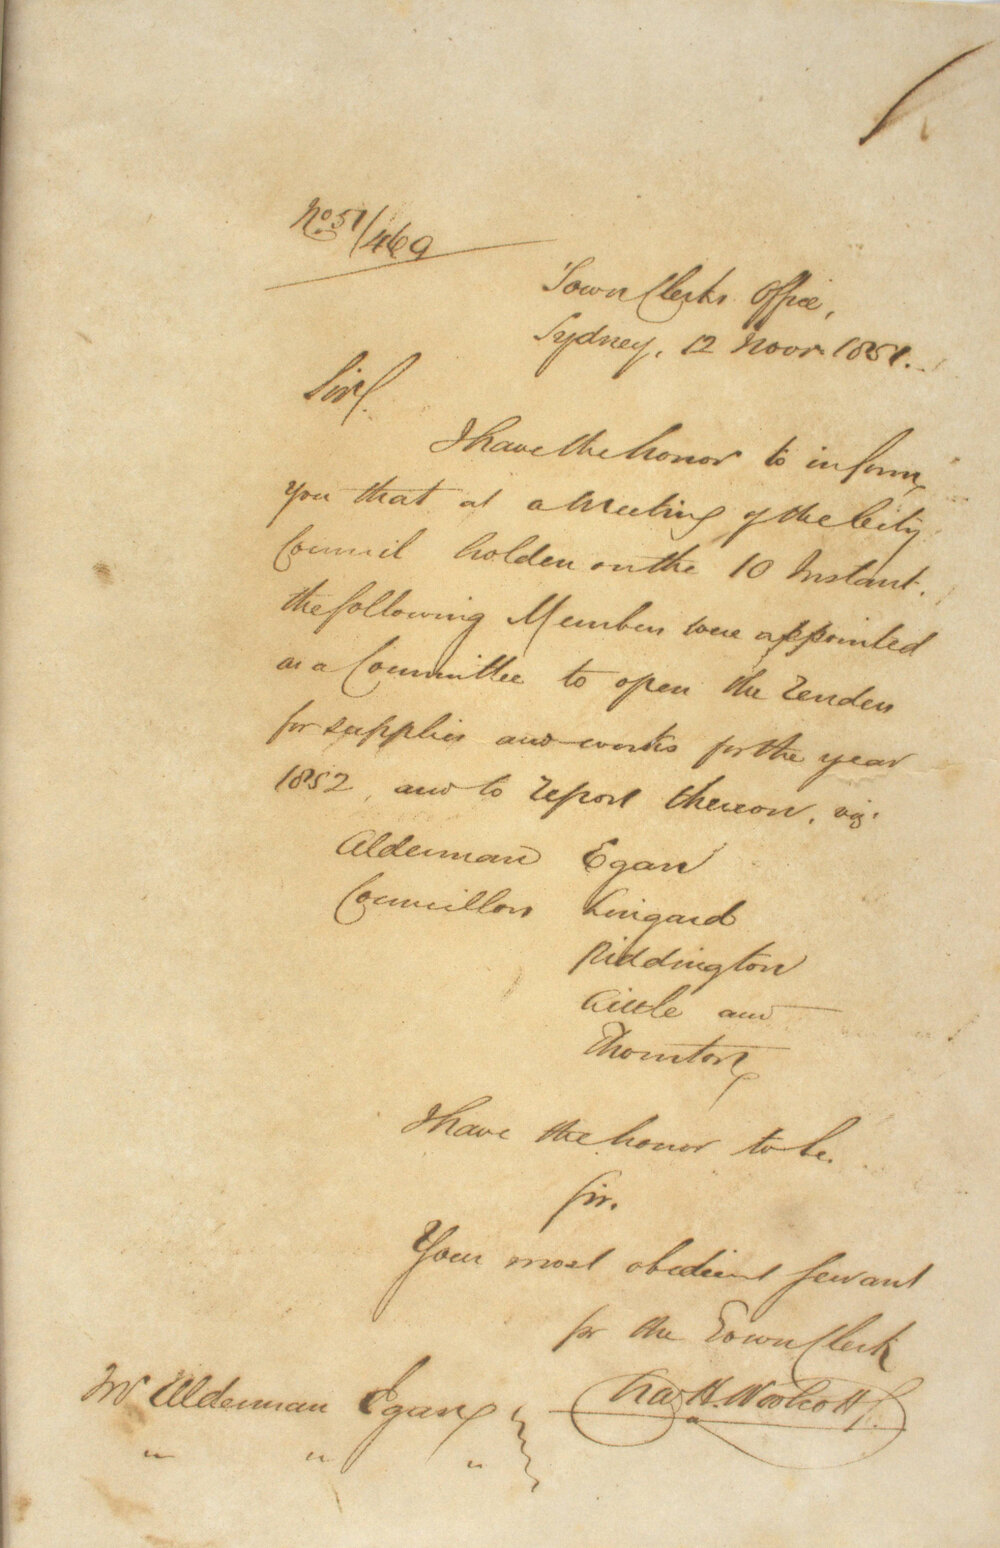 No. 51/469
Town Clerks Office,
Sydney, 12 Novr. 1851.
Sir,
I have the honor to inform
you that at a Meeting of the City
Council holden on the 10 Instant.
the following Members were appointed
as a Committee to open the Tenders
for supplies and works for the year
1852, and to report thereon, viz.
Alderman Egan
Councillors Lingard
Riddington
Little and
Thornton
I have the honor to be.
Sir.
Your most obedient servant
for the Town Clerk
Chas H. Woolcott
Mr Alderman Egan
" " "